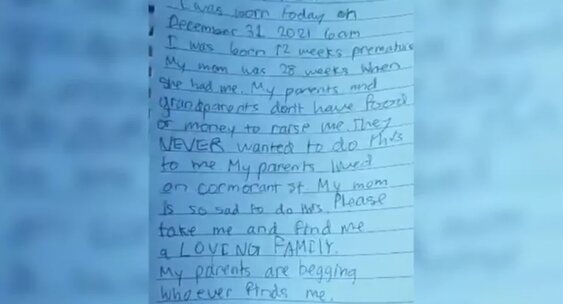 I was born today on
December 31 2021 6am
I was born 12 weeks premature
My mom was 28 weeks when
she had me. My parents and
grandparents don't have food
or money to raise me. They
NEVER wanted to do this
to me My parents lived
on cormorant st. My mom
is so sad to do this. Please
take me and find me
a LOVING FAMILY.
My parents are begging
whoever finds me.